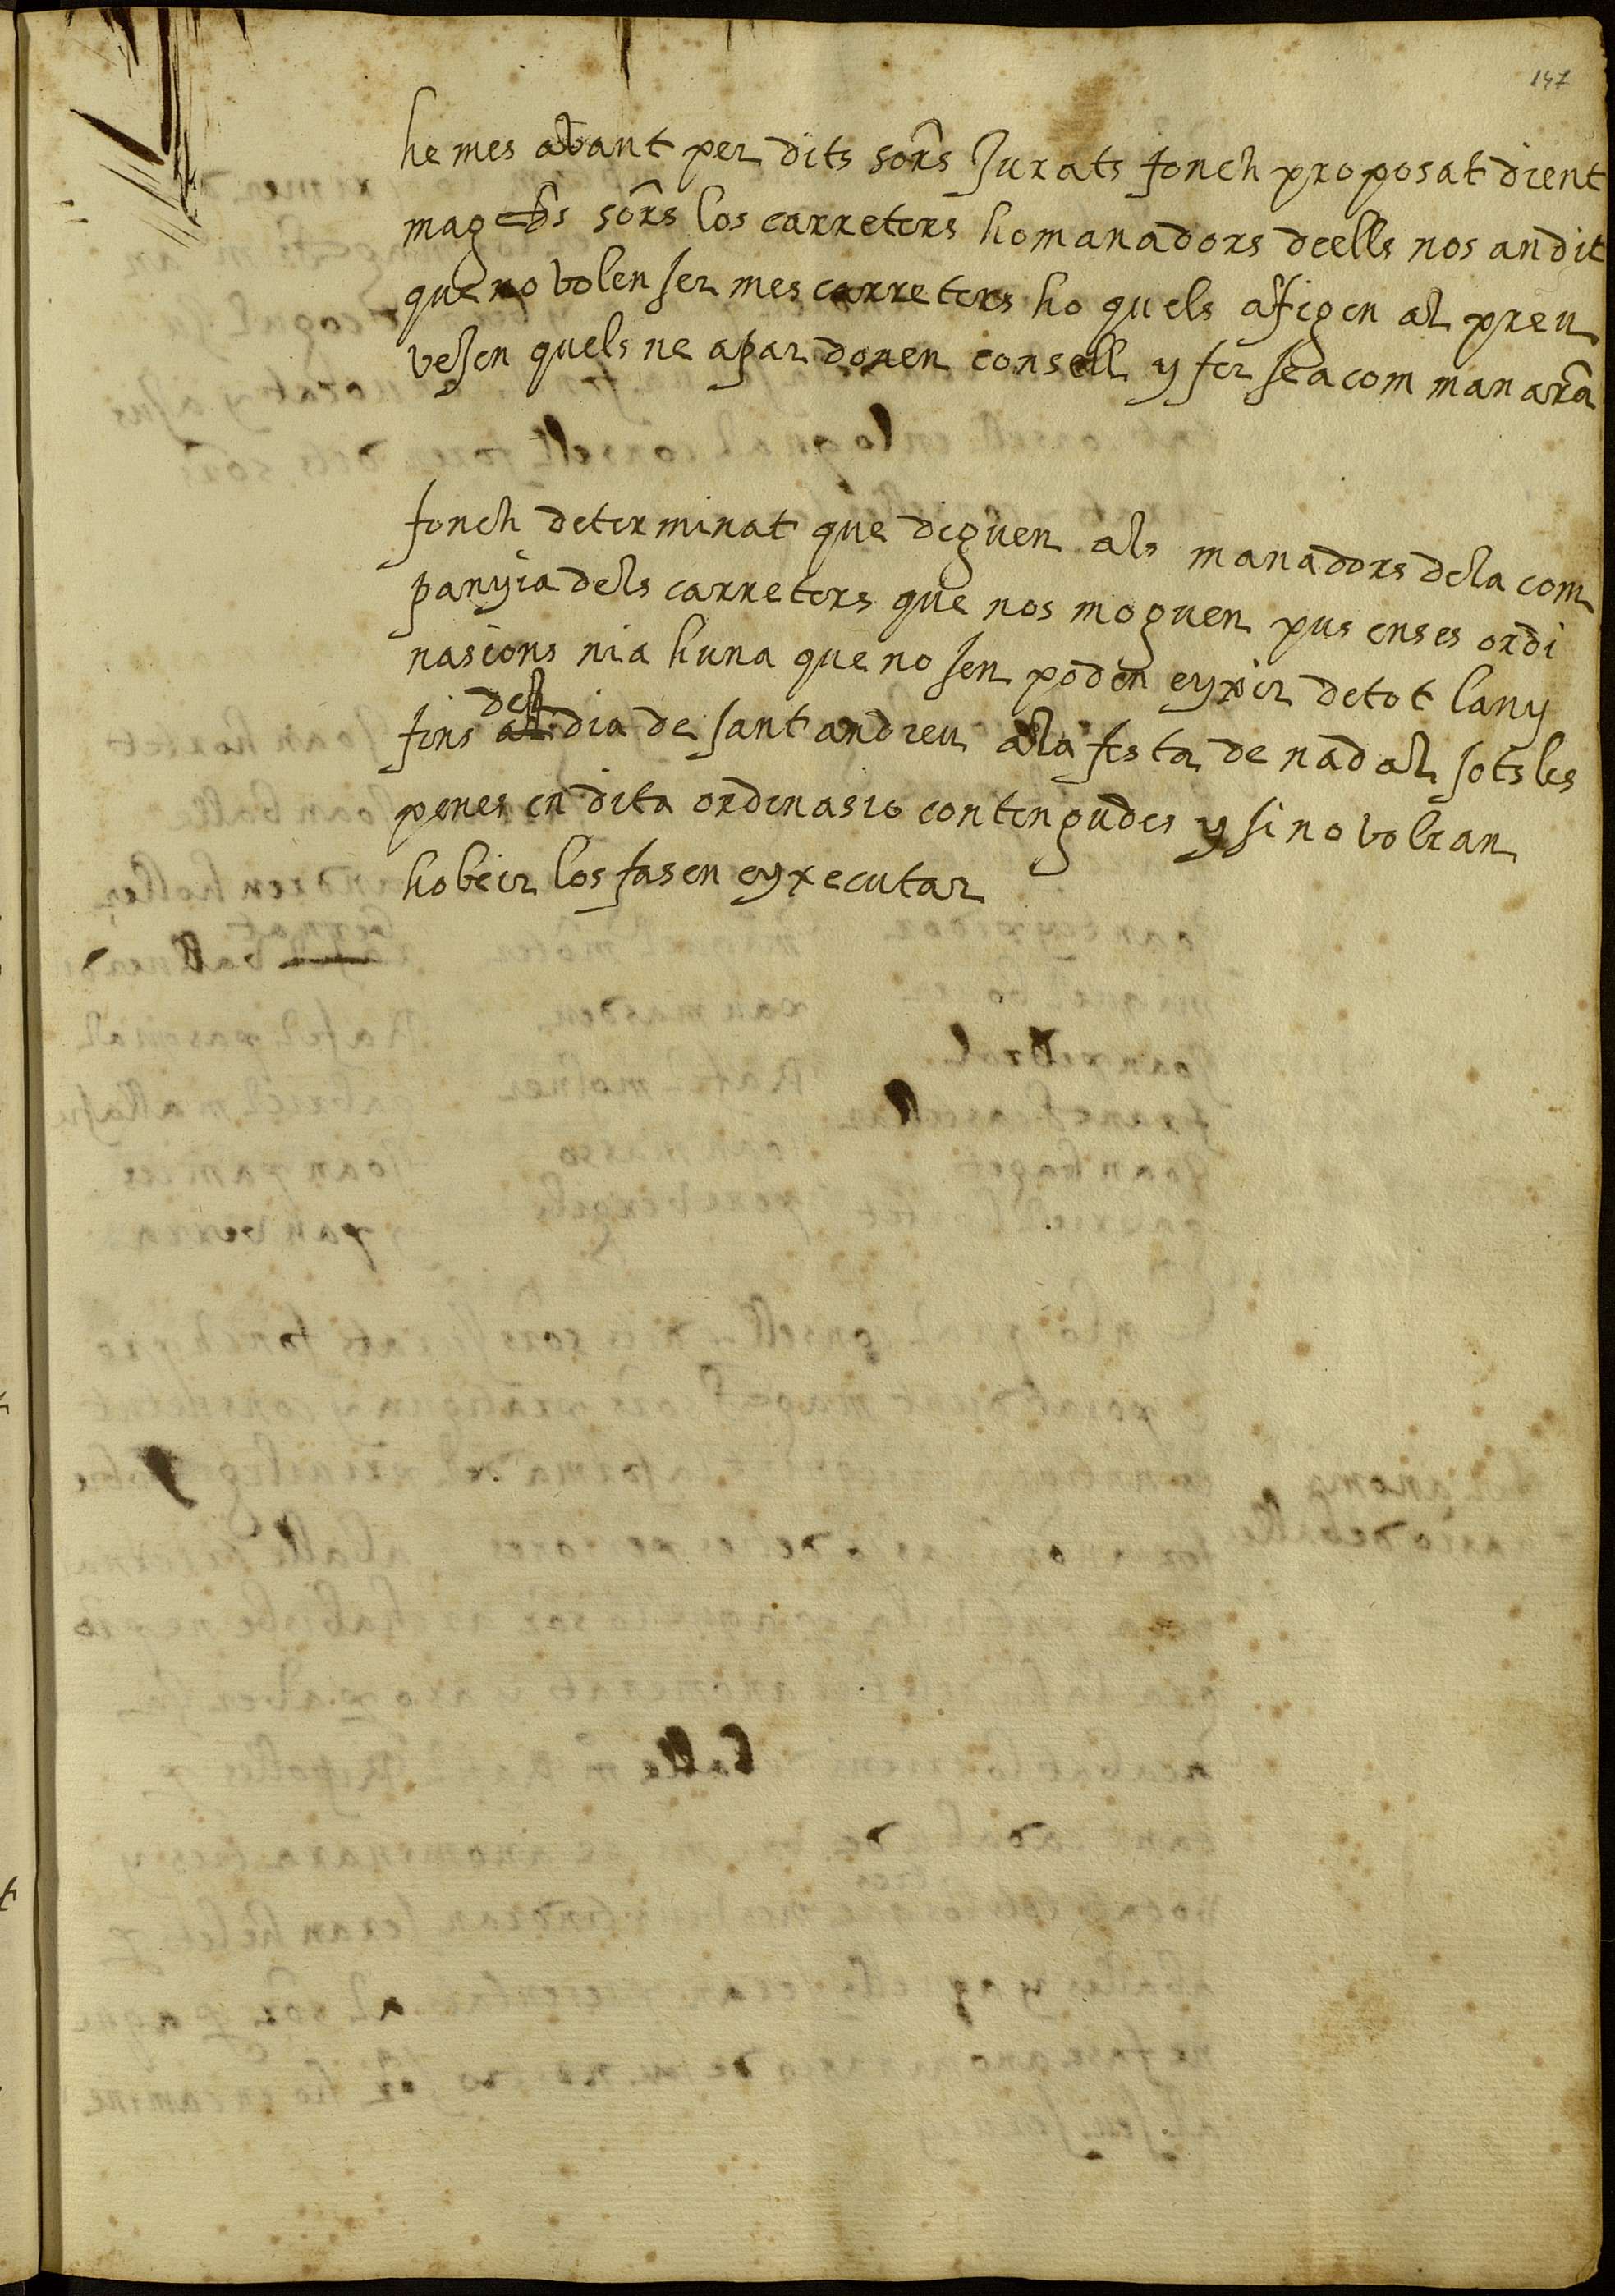 147
he mes avant per dits sors Jurats fonch proposat dient
magchs sors los carreters ho manadors de ells nos an dit
que no volen ser mes carreters ho quels afigen al preu
vesen quels ne apar donen consell y fer sea com manara
fonch determinat que diguen als manadors dela com
panyia dels carreters que nos moguen pus enses ordi
nasions nia huna que no sen poden eyxir de tot lany
fins del dia de sant andreu ala festa de nadal sots les
penes en dita ordinasio contengudes y si no volran
hobeir los fasen eyxecutar